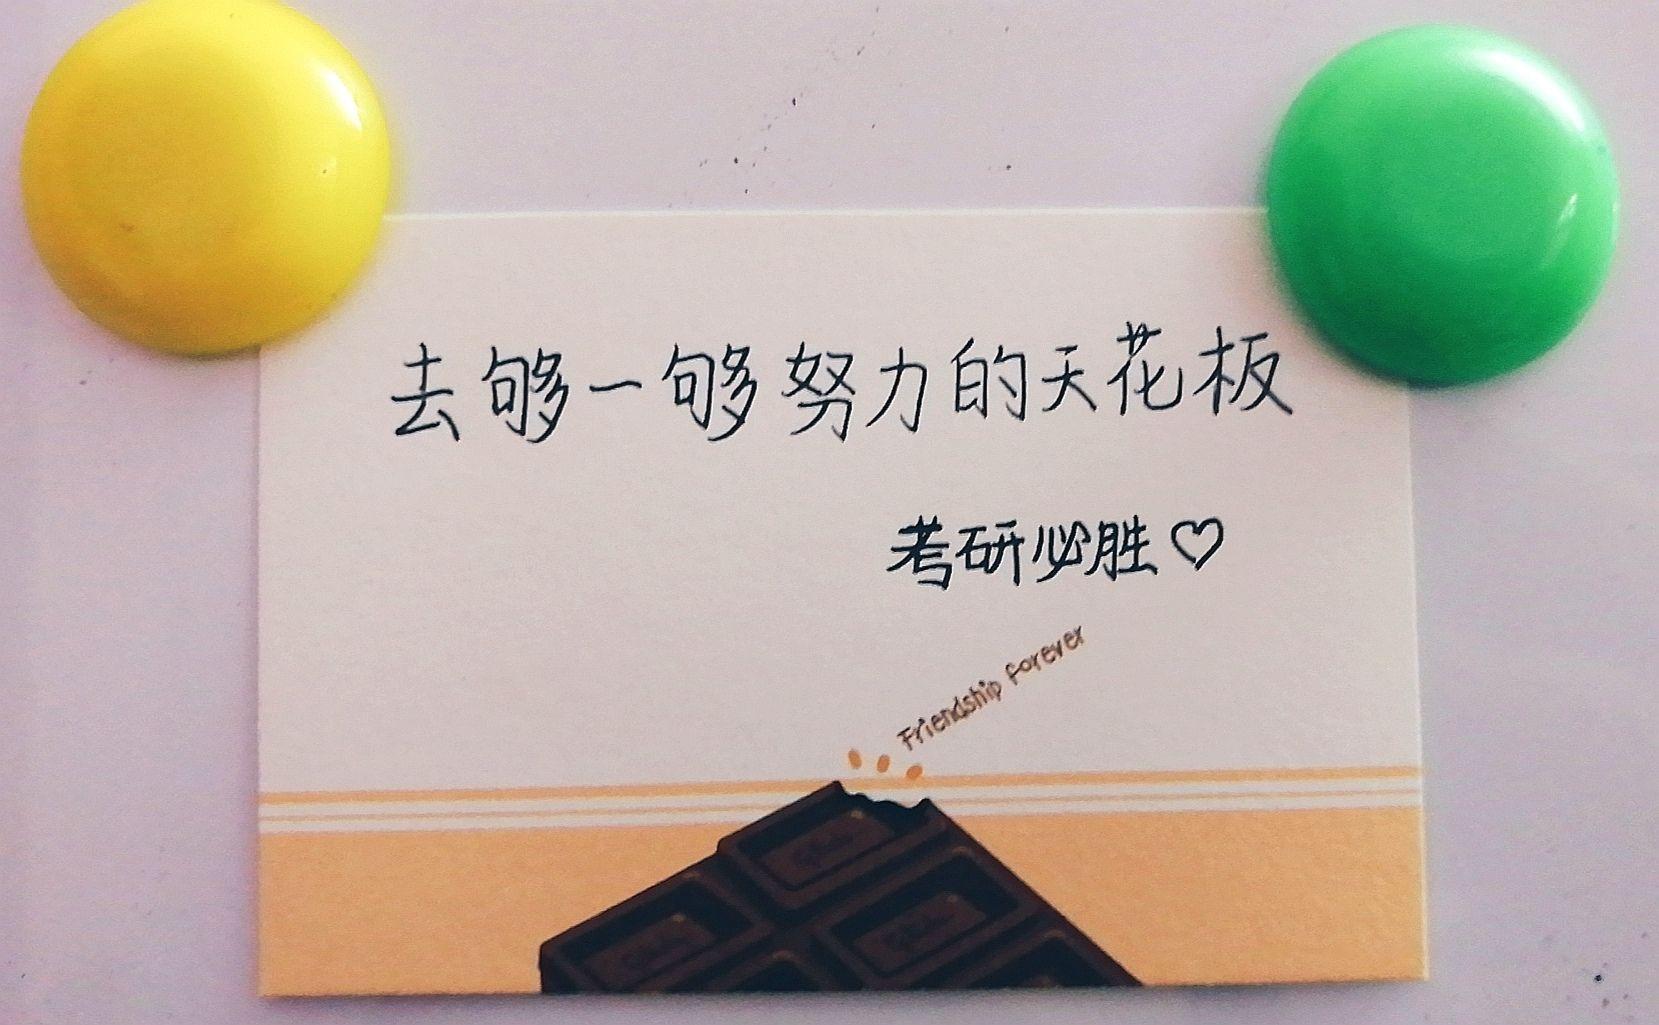 去够一够努力的天花板
考研必胜♡
Friendship forever